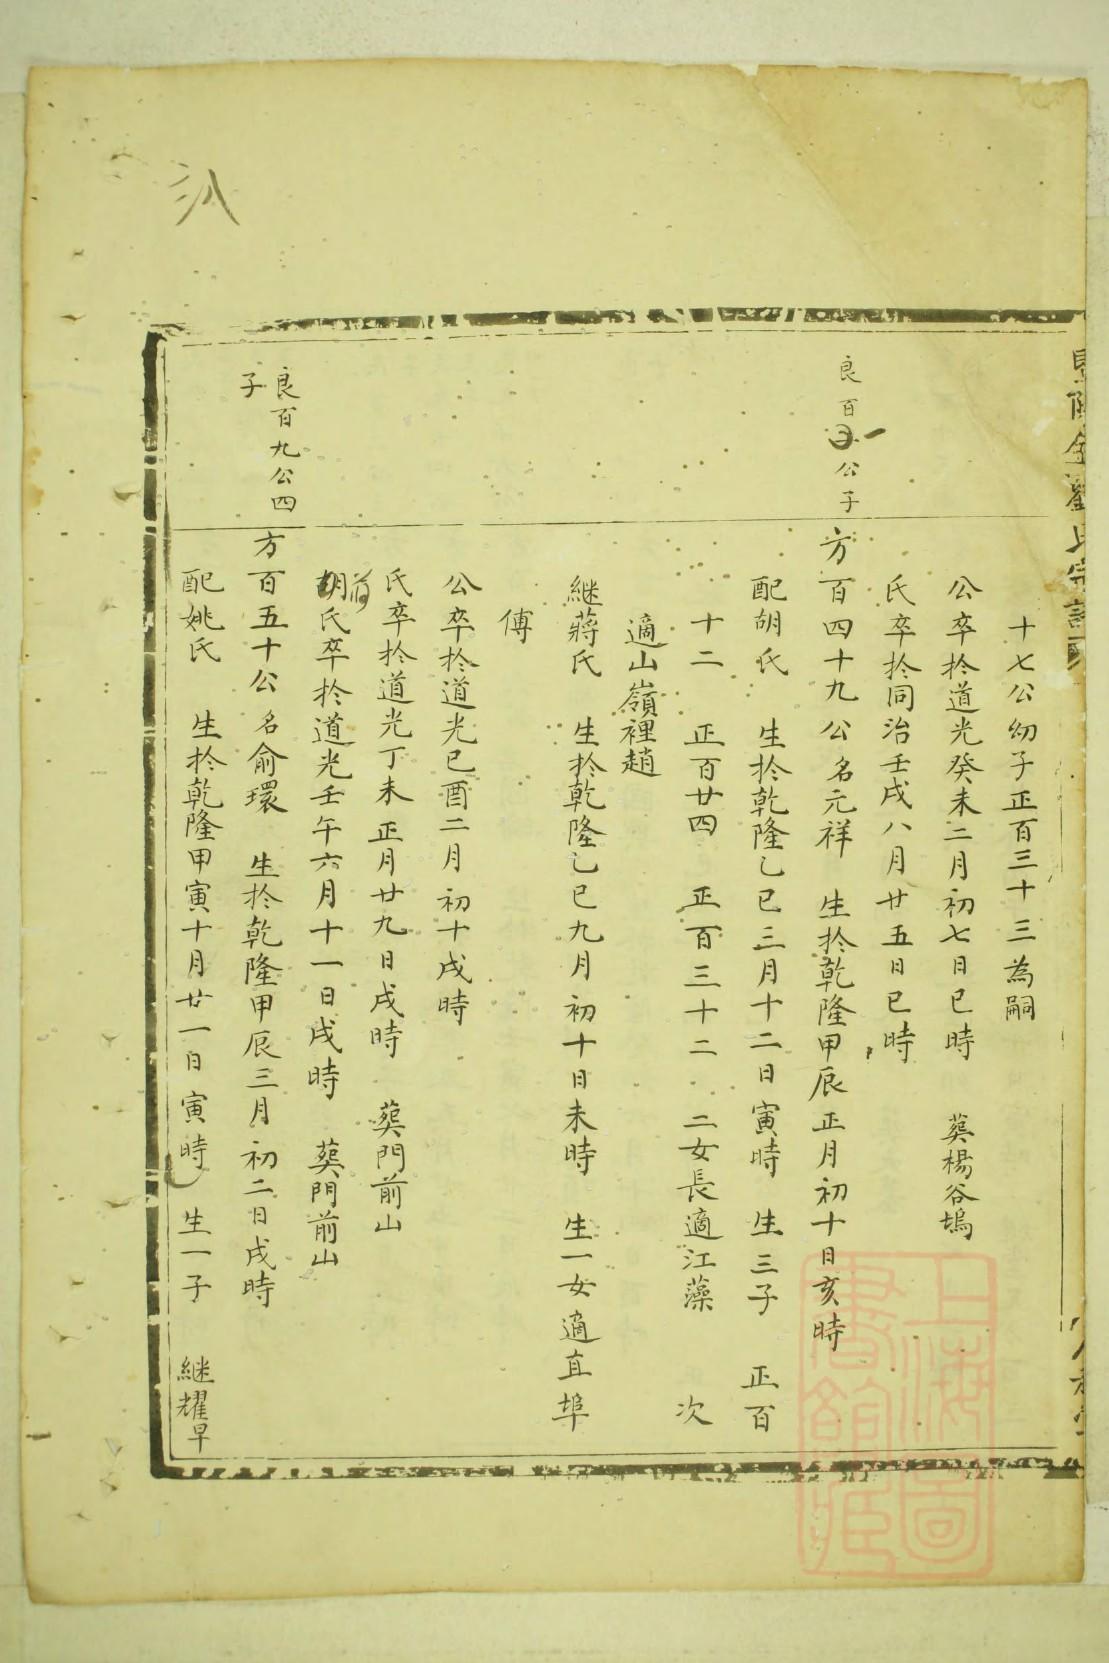 十七公幼子正百三十三為嗣
公卒扵道光癸未二月初七日巳時 葬楊谷塢
氏卒扵同治壬戌八月廿五日巳時
良百 公子
方百四十九公名元祥 生扵乾隆甲辰正月初十日亥時
配胡氏 生扵乾隆乙巳三月十二日寅時 生三子 正百
十二 正百廿四 正百三十二 二女長適江藻 次
適山嶺裡趙
継蔣氏 生扵乾隆乙巳九月初十日未時 生一女適直埠
傅
公卒扵道光己酉二月初十戌時
氏卒扵道光丁未正月廿九日戌時 葬門前山
氏卒扵道光壬午六月十一日戌時 葬門前山
良百九公四
子
方百五十公 名俞環 生扵乾隆甲辰三月初二日戌時
配姚氏 生扵乾隆甲寅十月廿一日寅時 生一子 継耀早
上海圖
書館藏